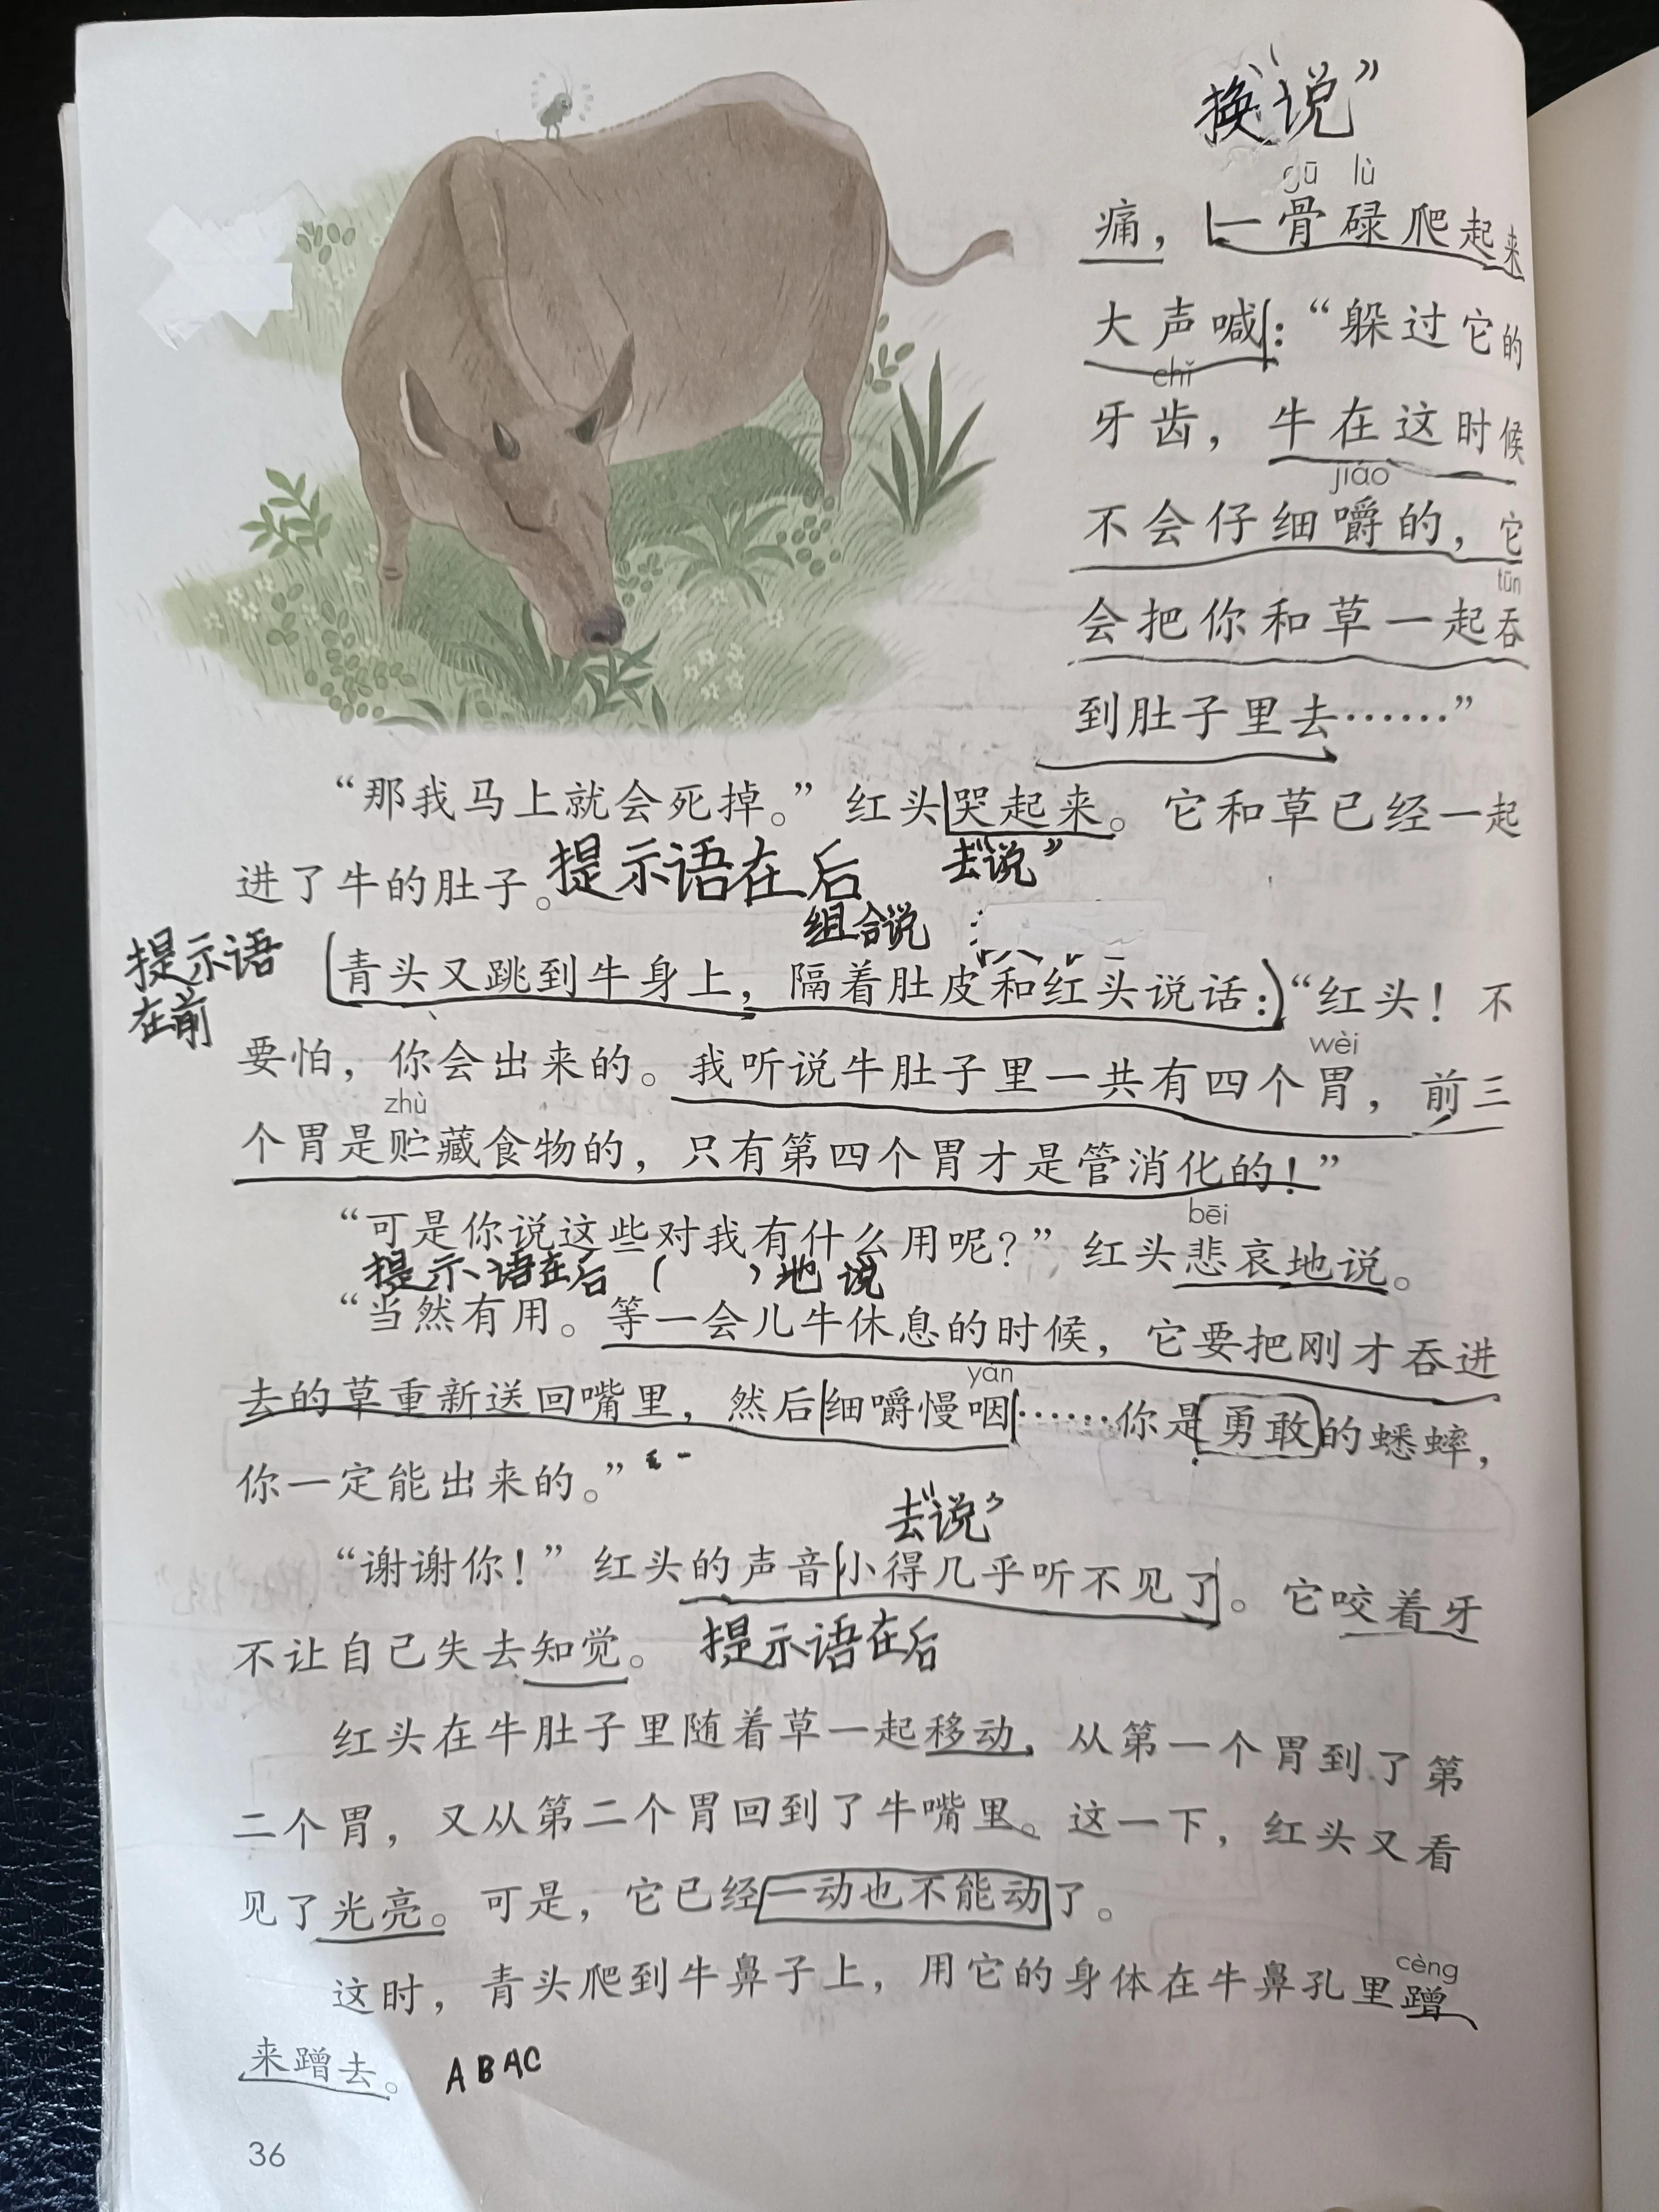 换“说”
gū lù
痛，一骨碌爬起来
大声喊：“躲过它的
chǐ
牙齿，牛在这时候
jiáo
不会仔细嚼的，它
tūn
会把你和草一起吞
到肚子里去……”
“那我马上就会死掉。”红头哭起来。它和草已经一起
进了牛的肚子。提示语在后 去“说”
组合说
提示语
在前
青头又跳到牛身上，隔着肚皮和红头说话：“红头！不
wèi
要怕，你会出来的。我听说牛肚子里一共有四个胃，前三
zhù
个胃是贮藏食物的，只有第四个胃才是管消化的！”
bēi
“可是你说这些对我有什么用呢？”红头悲哀地说。
提示语在后 （ ）地说
“当然有用。等一会儿牛休息的时候，它要把刚才吞进
yàn
去的草重新送回嘴里，然后细嚼慢咽……你是勇敢的蟋蟀，
你一定能出来的。”
去“说”
“谢谢你！”红头的声音小得几乎听不见了。它咬着牙
不让自己失去知觉。 提示语在后
红头在牛肚子里随着草一起移动，从第一个胃到了第
二个胃，又从第二个胃回到了牛嘴里。这一下，红头又看
见了光亮。可是，它已经一动也不能动了。
cèng
这时，青头爬到牛鼻子上，用它的身体在牛鼻孔里蹭
来蹭去。 ABAC
36